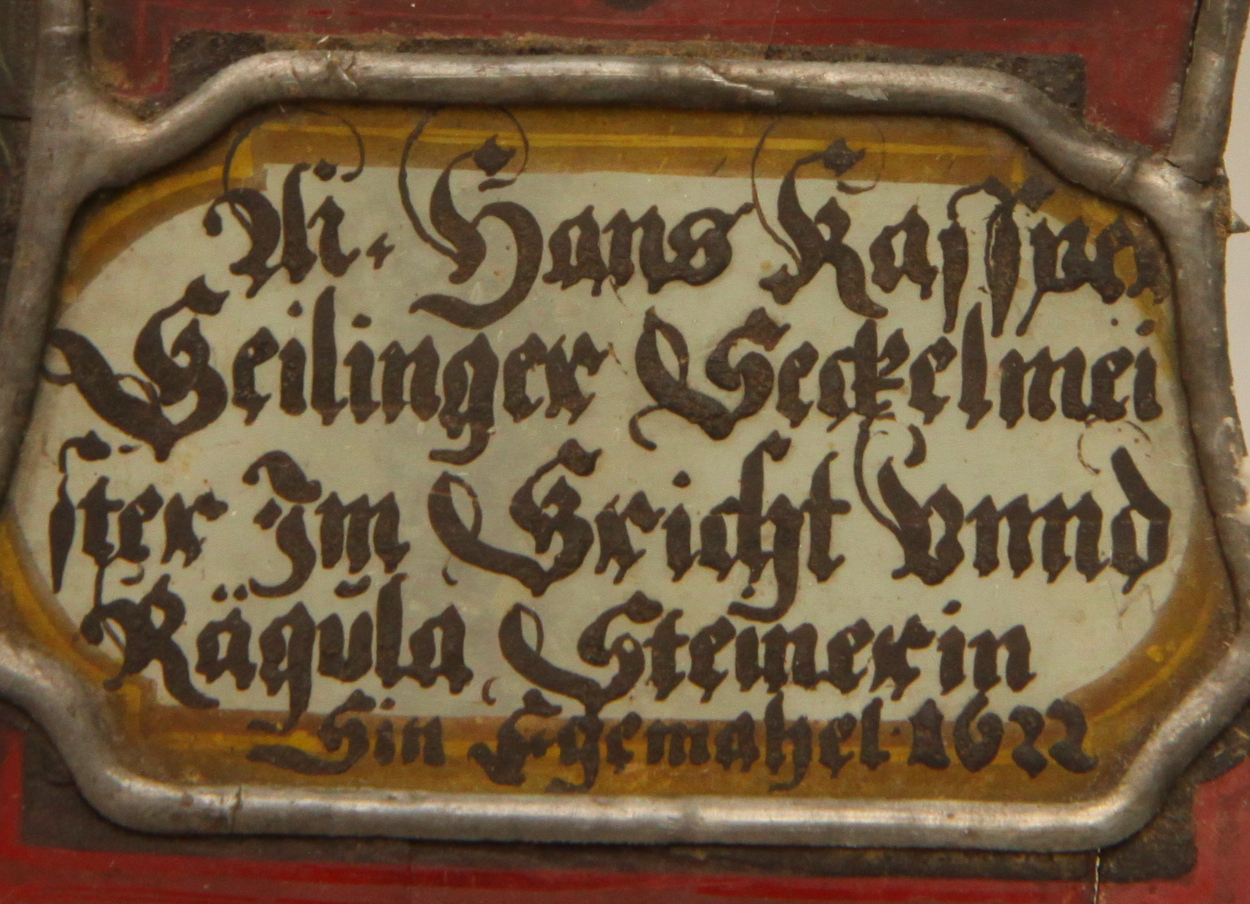 Hans Kaſſper
Geilinger Seckelmei
ſter Jm Gricht Vnnd
Rägŭla Steinerin
Sin Egemahel· 1622